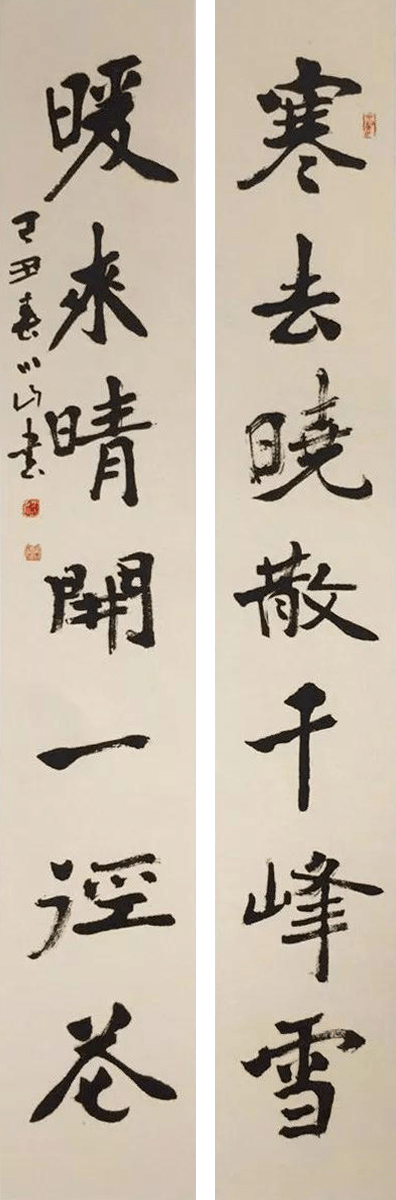 寒去曉散千峰雪
暖來晴開一徑花
丁丑春小山書